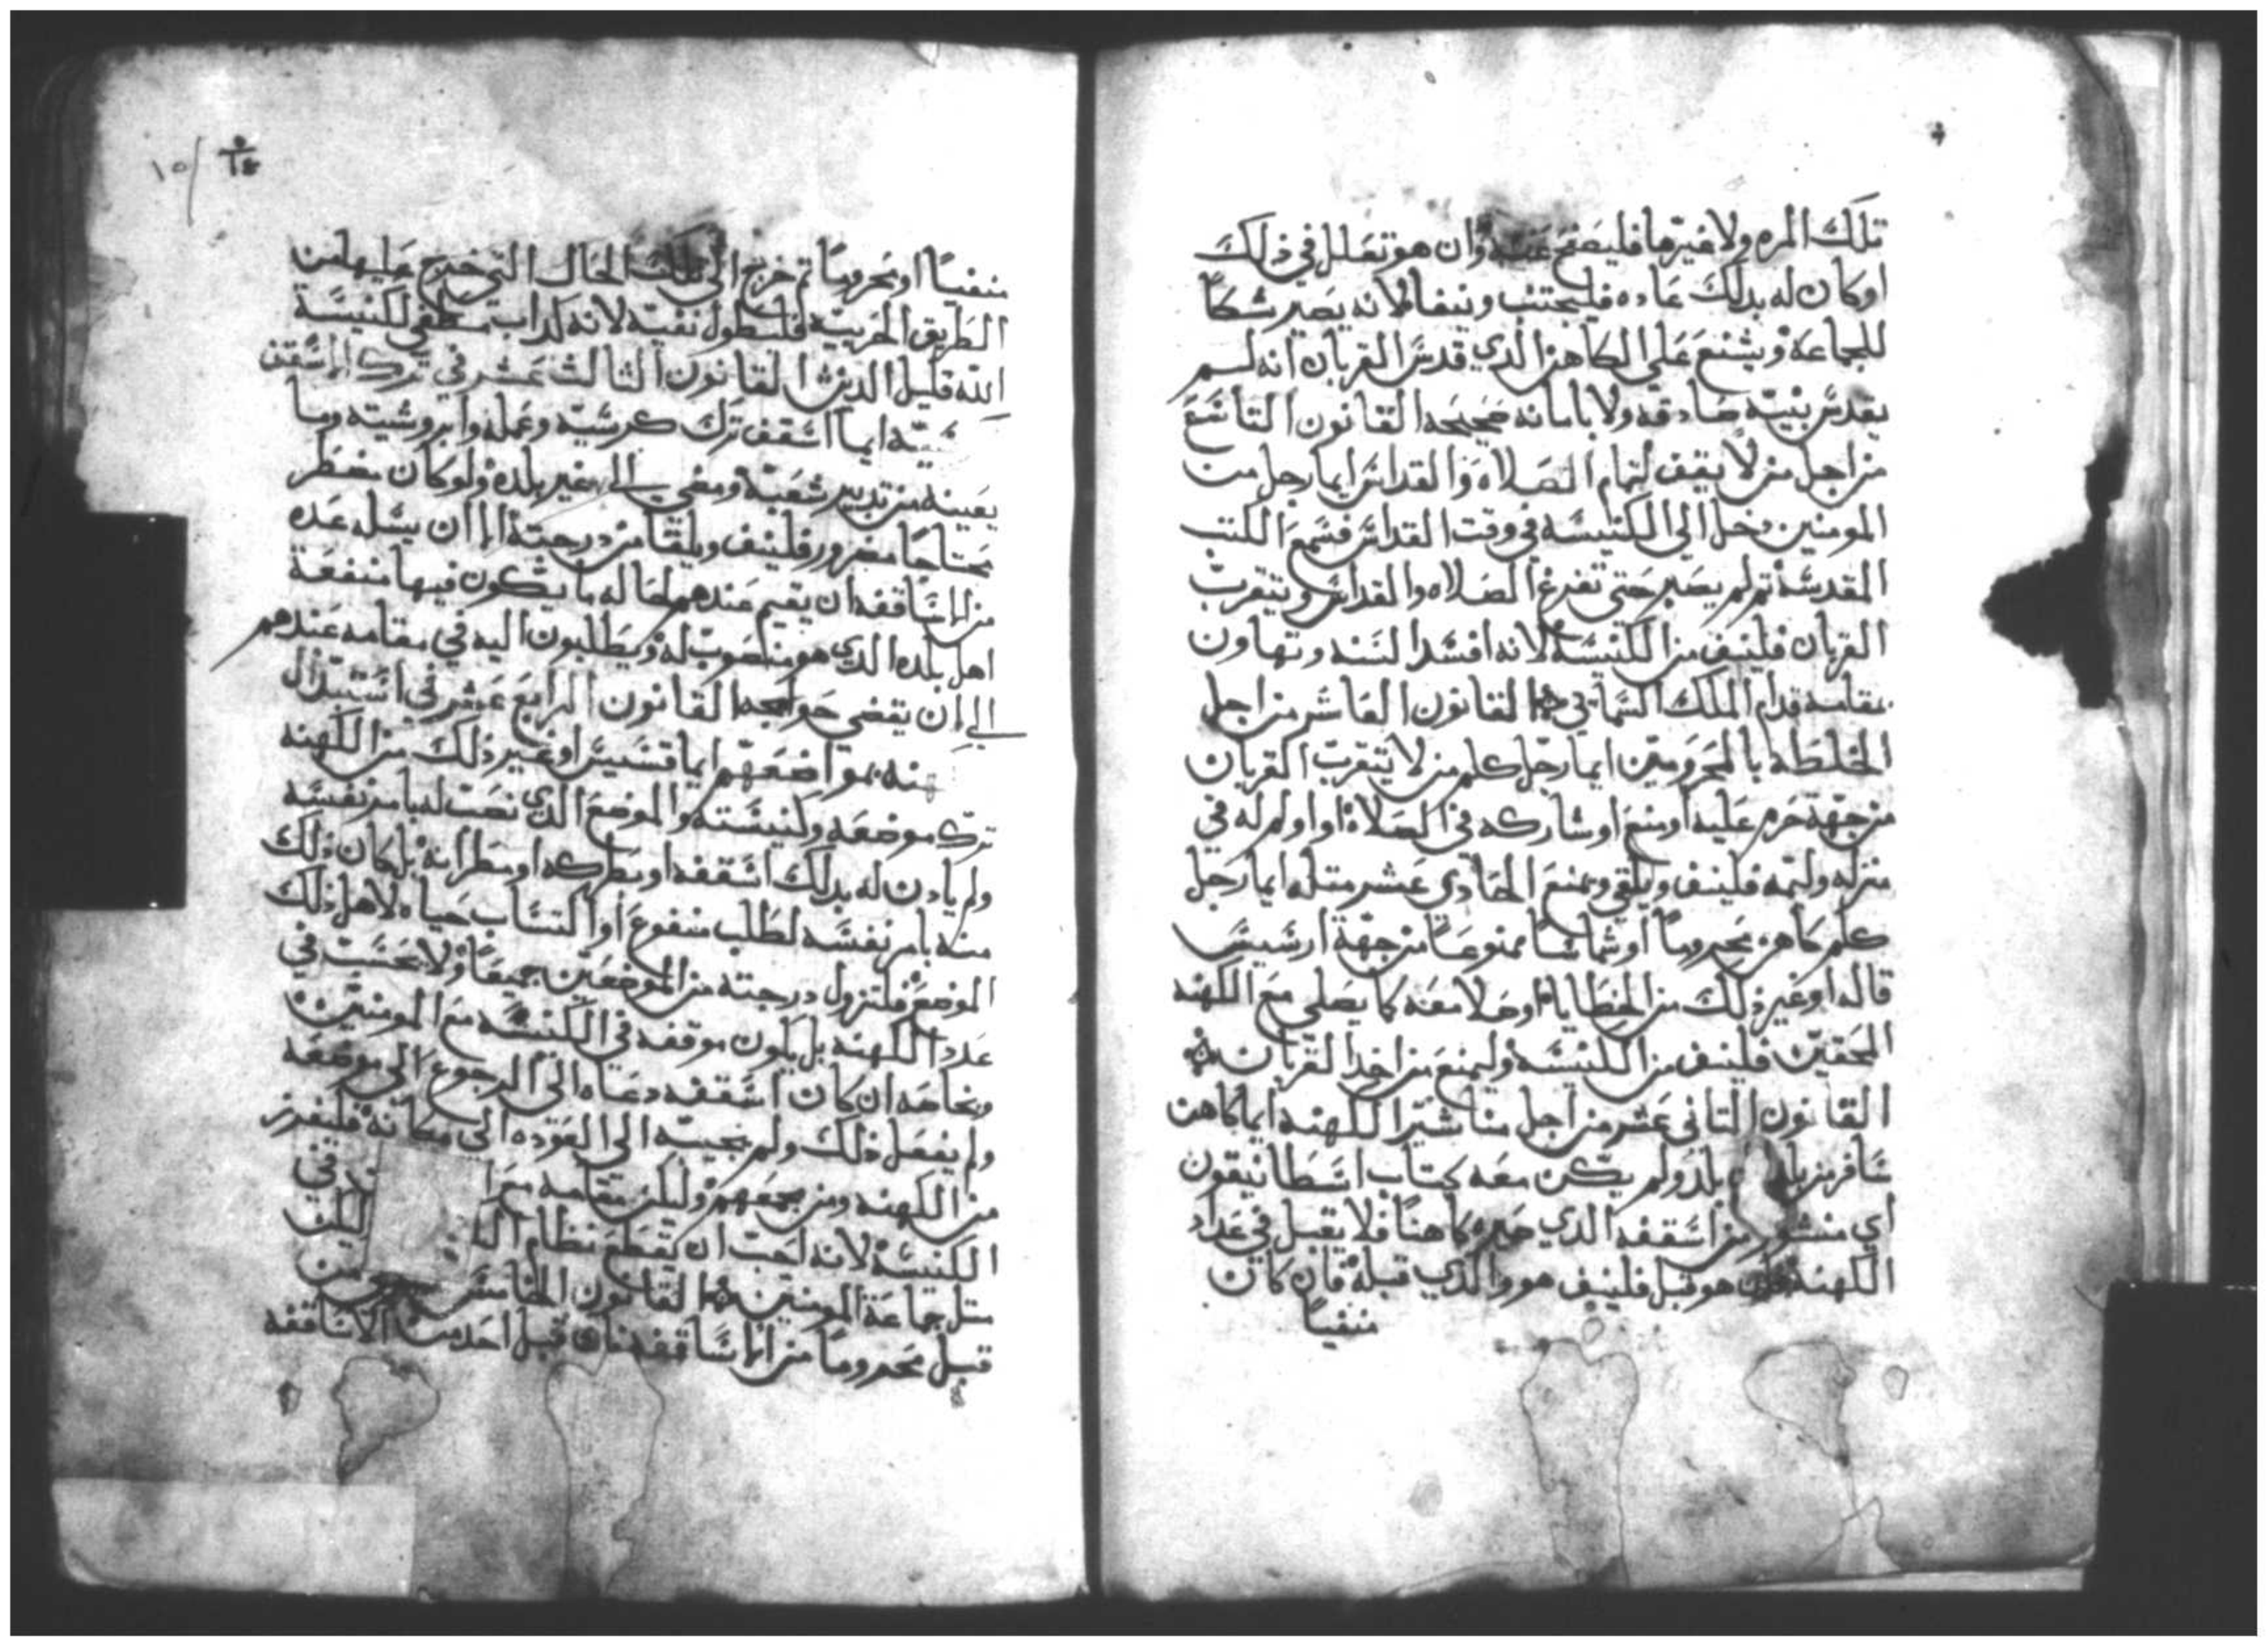 تلك المره ولا غيرها فليصفح عنه وان هو تعلل في ذلك
او كان له بدلك عاده فليجتنب وينفا لانه يصير شكاً
للجماعه ويشنع على الكاهن الدي قدس القربان انه لم
يقدس بنيه صادقه ولا بامانه صحيحه القانون التاسع
من اجل من لا يقف لتمام الصلاه والقداس ايما رجل من
المومنين دخل الى الكنيسه في وقت القداس فسمع الكتب
المقدسه تم لم يصبر حتى تفرغ الصلاه والقداس ويتقرب
القربان فلينف من الكنيسه لانه افسد السنه وتهاون
بمقامه قدام الملك السماي القانون العاشر من اجل
الخلطه بالمحرومين ايما رجل كلم من لا يتقرب القربان
من جهة حرم عليه او منع او شاركه في الصلاه او اولم له في
منزله وليمه فلينف ويلقى ويمنع الحادي عشر متله ايما رجل
كلم كاهن محروماً او شماساً ممنوعاً من جهة ارسيس
قاله او غير ذلك من الخطايا او صلا معه كما يصلي مع الكهنه
المحقين فلينف من الكنيسه وليمنع من اخد القربان
القانون التاني عشر من اجل مناشير الكهنه ايما كاهن
سافر من بلد بلد ولم يكن معه كتاب اسطاتيقون
اي منشور من اسقفه الدي صيره كاهناً فلا يقبل في عداد
الكهنه فان هو قبل فلينف هو والدي قبله فان كان
منفياً
١٤
١٥
منفياً او محروماً تم خرج الى تلك الحال التي خرج عليها من
الطريق الحربيه فلسطول نفيه لانه كداب مسطغي لكنيسة
الله قليل الدين القانون التالت عشر في ترك الاسقف
سيه ايما اسقف ترك كرسيه وعمله وابروشيته وما
يعينه من تدبير شعبه ومضى الى غير بلده ولو كان مضطر
محتاجاً مضرور فلينف ويلقا من درجته الا ان يسله عده
من الاساقفه ان يقيم عندهم لحاله ما يكون فيها منفعة
اهل بلده الدي هو منصوب له ويطلبون اليه في مقامه عندهم
الى ان يقضي حوايجه القانون الرابع عشر في استبدال
هنه بمواضعهم ايما قسيس او غير ذلك من الكهنه
ترك موضعه وكنيسته والموضع الدي نصب له بامر نفسه
ولم يادن له بدلك اسقفه او بطركه او مطرانه بل كان ذلك
منه بامر نفسه لطلب منفوع او التساب حياه لاهل ذلك
الموضع فلتزول درجته من الموضعين جميعاً ولا يحسب في
عدد الكهنه بل يكون موقفه في الكنسه مع المومنين
وبخاصه ان كان اسقفه دعاه الى الرجوع الى موضعه
ولم يفعل ذلك ولم يجيبه الى العوده الى مكانه فليفرز
من الكهنه ومن جمعهم وليكن مقامه مع في
الكنسه لانه احب ان يقطع نظام ليكن
متل جماعة المومنين القانون الخامس من
قبل محروماً من الاساقفه فان قبل احد من الاساقفه